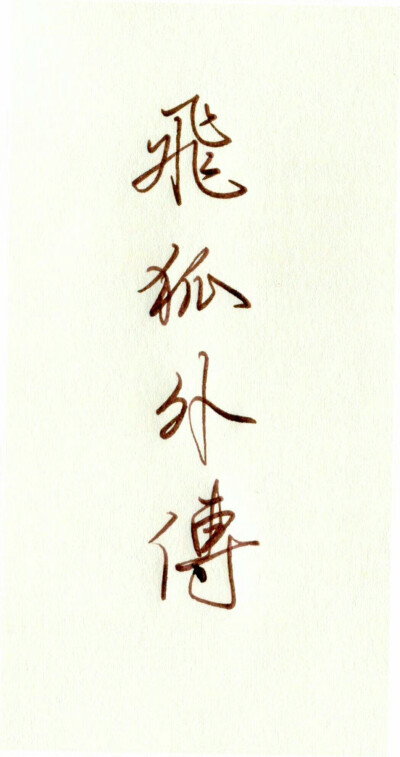 飛狐外傳